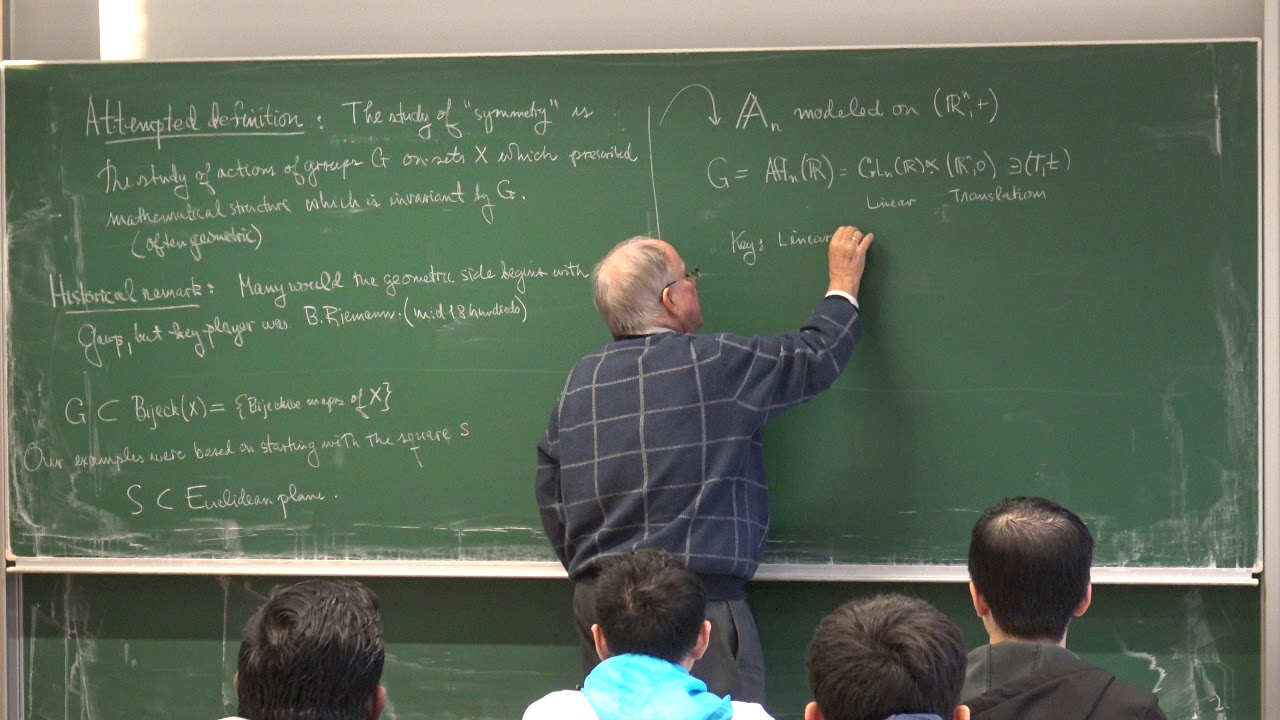 Attempted definition: The study of "symmetry" is
The study of actions of groups G on sets X which prescribed
mathematical structure which is invariant by G.
(often geometric)
Historical remark: Many would the geometric side begins with
Gauß, but key player was B. Riemann. (mid 18 hundreds)
G ⊂ Biject(X) = {Bijective maps of X}
Our examples were based on starting with the square S
S ⊂ Euclidean plane.
𝔸ₙ modeled on (ℝⁿ, +)
G = Affₙ(ℝ) = GLₙ(ℝ) ⋉ (ℝⁿ, 0) ∋ (T, t)
Linear Translation
Key: Linear